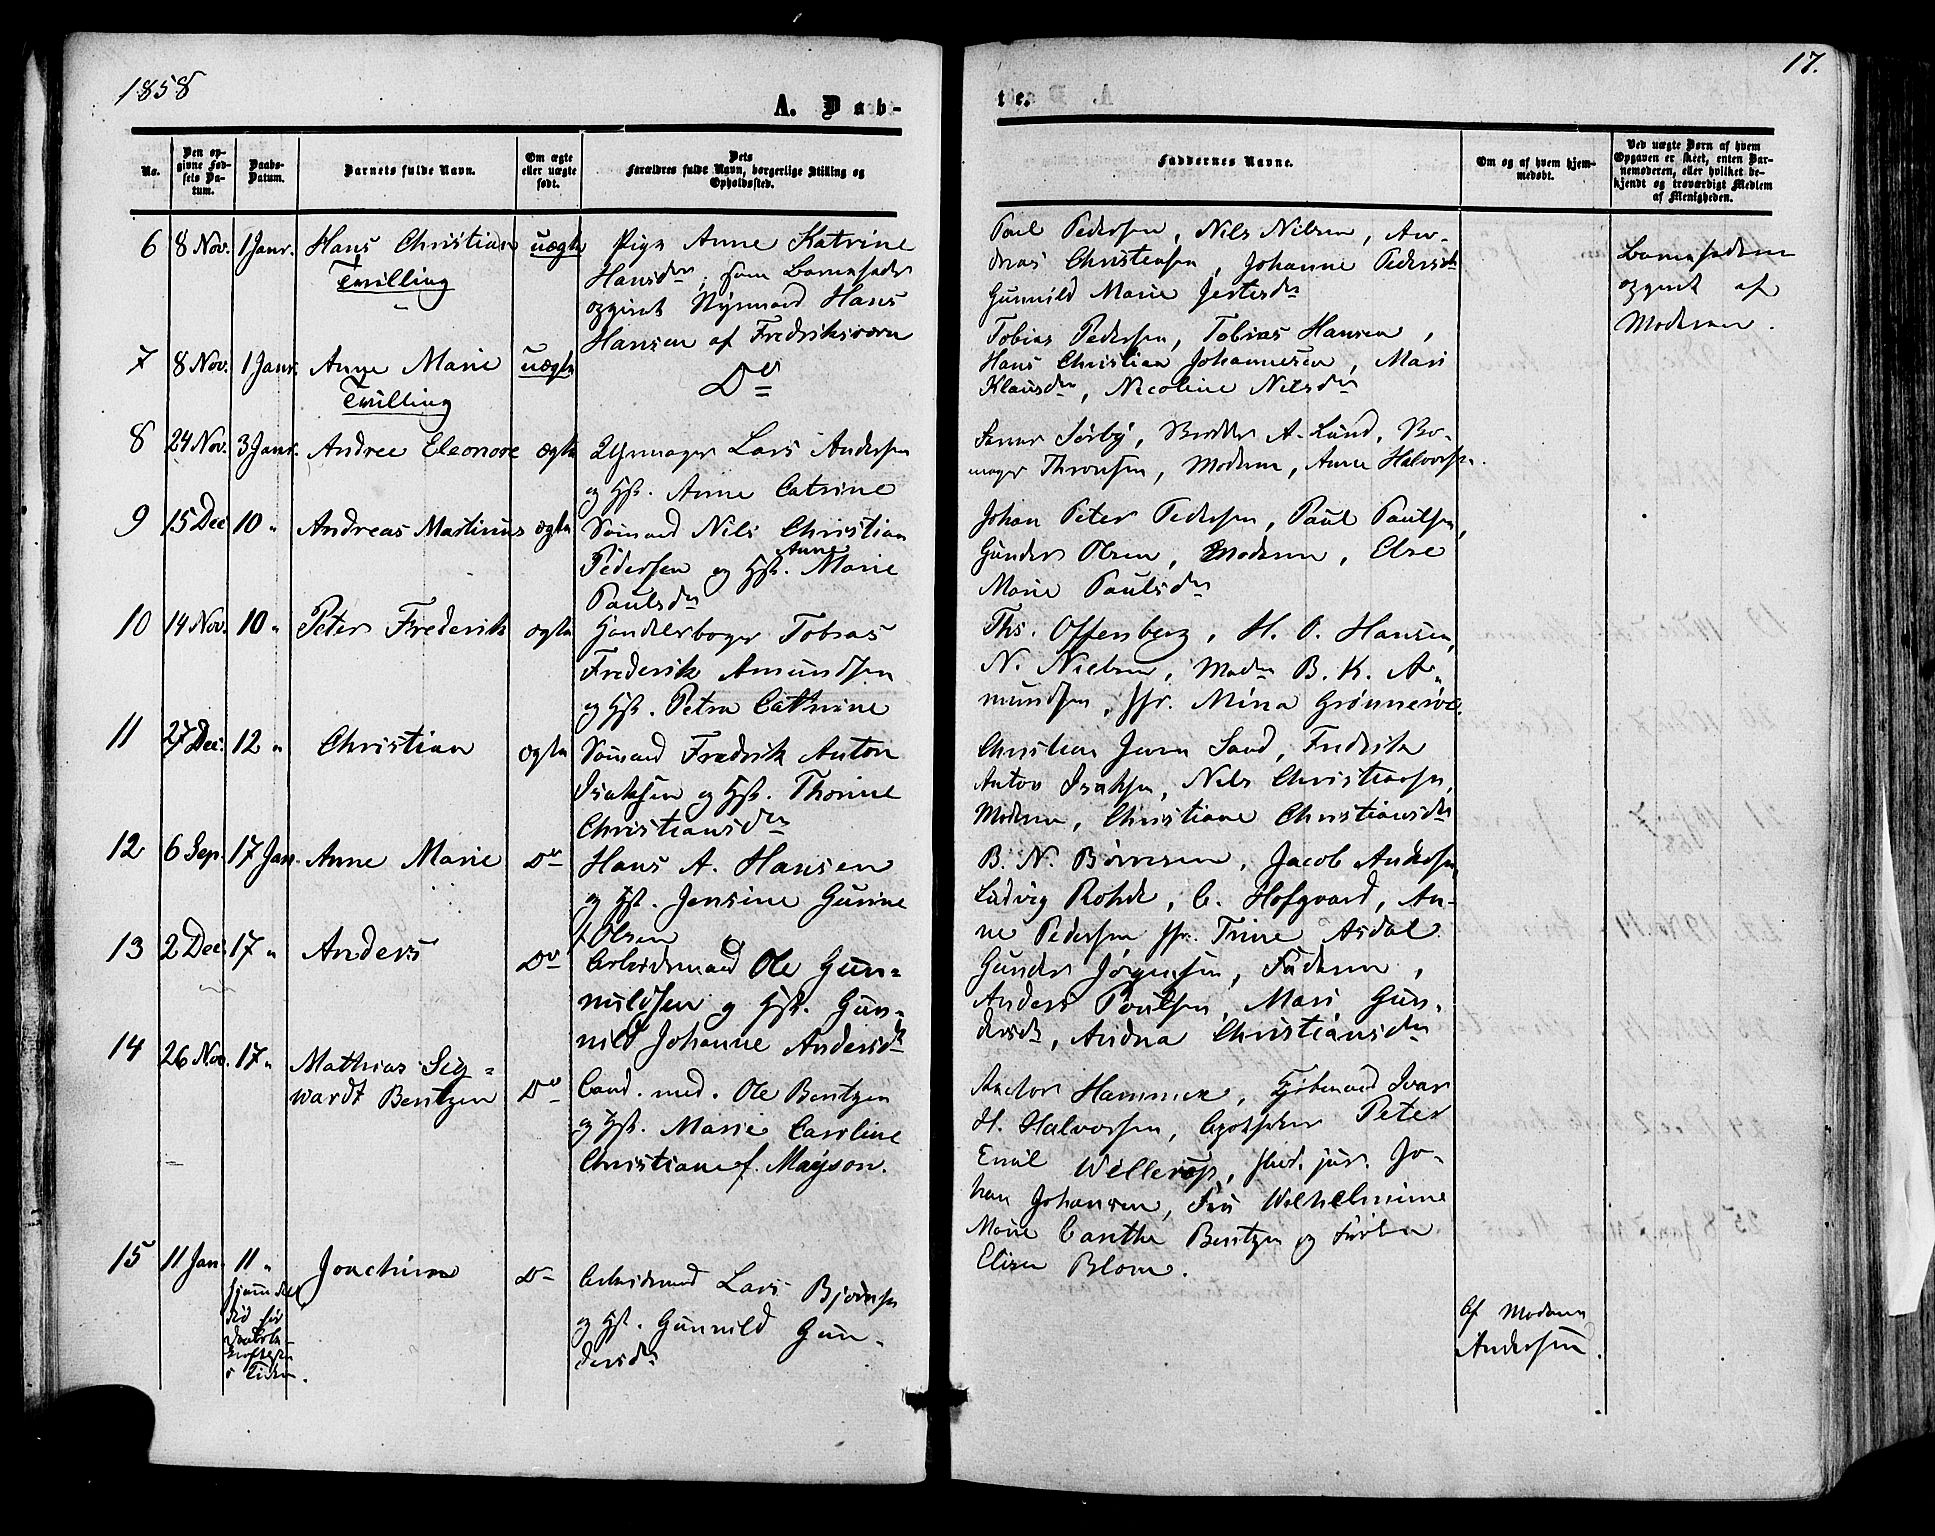 1858
17.
A. Døb-
te.
No.
Den op-
givne Fød-
sels Da-
tum.
Daabs-
Datum.
Barnets fulde Navn.
Om ægte
eller uægte
født.
Dets
Forældres fulde Navn, borgerlige Stilling og
Opholdssted.
Faddernes Navne.
Om og af hvem hjem-
medøbt.
Ved uægte Børn af hvem
Opgaven er skeet, enten Bar-
nemoderen, eller hvilket be-
kjendt og troværdigt Medlem
af Menigheden.
6 8 Nov. 1 Janr. Hans Christian uægte
Tvilling
Pige Anne Katrine
Hansdtr, som Barnefader
opgivet Nymand Hans
Hansen af Fredriksværn
Poul Pedersen, Nils Nilsen, An-
dreas Christensen, Johanne Pedersdtr
Gunnild Marie
Barnefaderen
opgivet af
Moderen.
7 8 Nov. 1 Janr. Anne Marie uægte
Tvilling
Do
Tobias Pedersen, Tobias Hansen,
Hans Christian Johannesen, Mari
Klausdtr, Nicoline Nilsdtr
8 24 Nov. 3 Janr. Andree Eleonore ægte
Lars Andersen
og Hst. Anne Catrine
Sørby, A. Lund,
Thronsen, Moderen, Anne Halvorsen.
9 15 Dec 10 " Andreas Martinus ægte
Sømand Nils Christian
Pedersen og Hst. Anne Marie
Paulsdtr
Johan Peter Pedersen, Paul Paulsen,
Gunder Olsen, Moderen, Else
Marie Paulsdtr
10 14 Nov. 10 " Peter Frederik ægte
Tobias
Frederik Amundsen
og Hst. Petra Cathrine
Ths. Offenberg, H. O. Hansen,
N. Nielsen, Mad. B. K. A-
mundsen, Jfr. Mina
11 27 Dec. 12 " Christian ægte
Sømand Fredrik Anton
Isaksen og Hst. Thorine
Christiansdtr
Christian Sand, Fredrik
Anton Isaksen, Nils Christiansen,
Moderen, Christiane Christiansdtr
12 6 Sep. 17 Jan. Anne Marie Do
Hans A. Hansen
og Hst. Jensine Gurine
f. Olsen
B. N. Børresen, Jacob Andersen,
Ludvig Rohde, C. Hofgaard, An-
ne Pedersen, Jfr. Trine Asdal.
13 2 Dec. 17 " Anders Do
Arbeidsmand Ole Gun-
nildsen og Hst. Gun-
nild Johanne Andersdtr
Gunder Jørgensen, Faderen,
Anders Poulsen, Mari Gun-
dersdtr, Andrea Christiansdtr
14 26 Nov. 17 " Mathias Sig-
wardt Bentzen Do
Cand. med. Ole Bentzen
og Hst. Marie Caroline
Christiane f. Mayson.
Hammer, Ivar
H. Halvorsen, Apotheker Peter
Emil Willerup, Stud. jur. Jo-
han Johansen, Fru Wilhelmine
Marie Bentzen og Frøken
Elisa Blom.
15 11 Jan. 11 " Joachim Do
hjemdøbt
død før
i Kirken.
Arbeidsmand Lars Bjørnsen
og Hst. Gunnild Gun-
dersdtr
Af Moderen
Andersen.